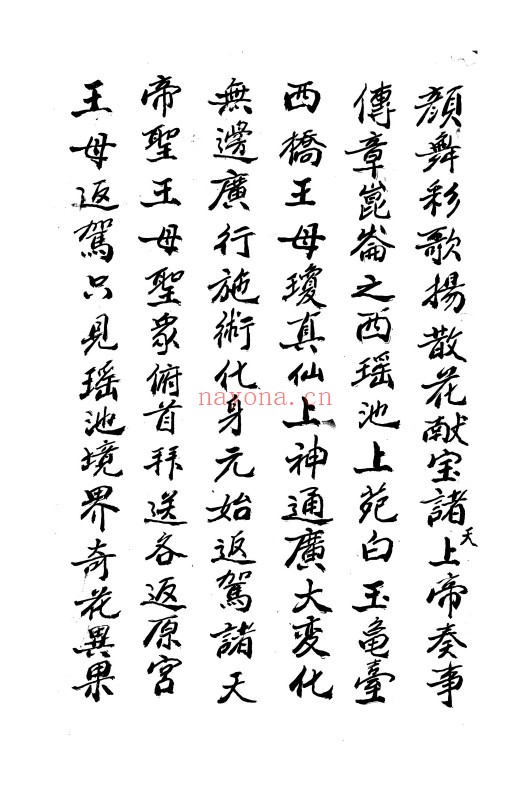 顔舞彩歌揚散花献宝諸天上帝奏事
傳章崑崙之西瑶池上苑白玉亀臺
西橋王母瓊真仙上神通廣大変化
無邊廣行施術化身元始返駕諸天
帝聖王母聖衆俯首拜送各返原宮
王母返駕只見瑶池境界奇花異果
nayona.cn